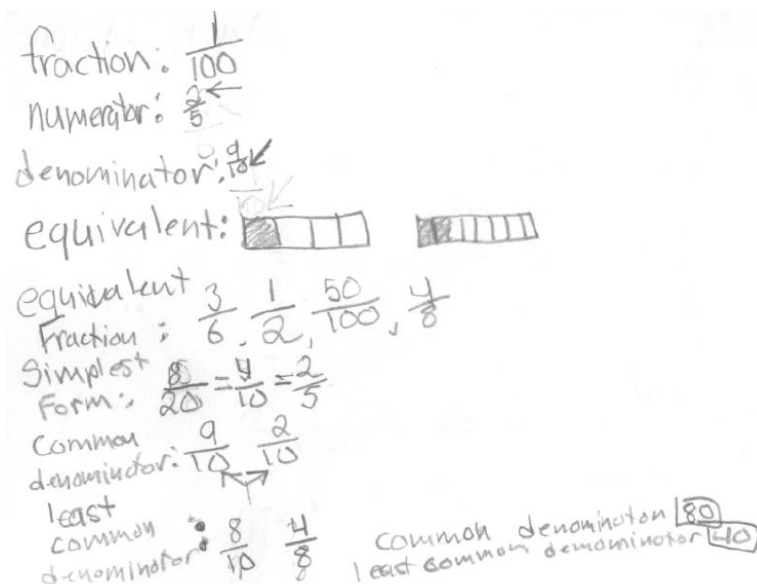 fraction: 1/100
numerator: 2/5
denominator: 9/10
equivalent:
equivalent
Fraction: 3/6, 1/2, 50/100, 4/8
Simplest
Form: 8/20 = 4/10 = 2/5
common
denominator: 9/10 2/10
least
common
denominator: 8/10 4/8
common denominator 80
least common demominator 40